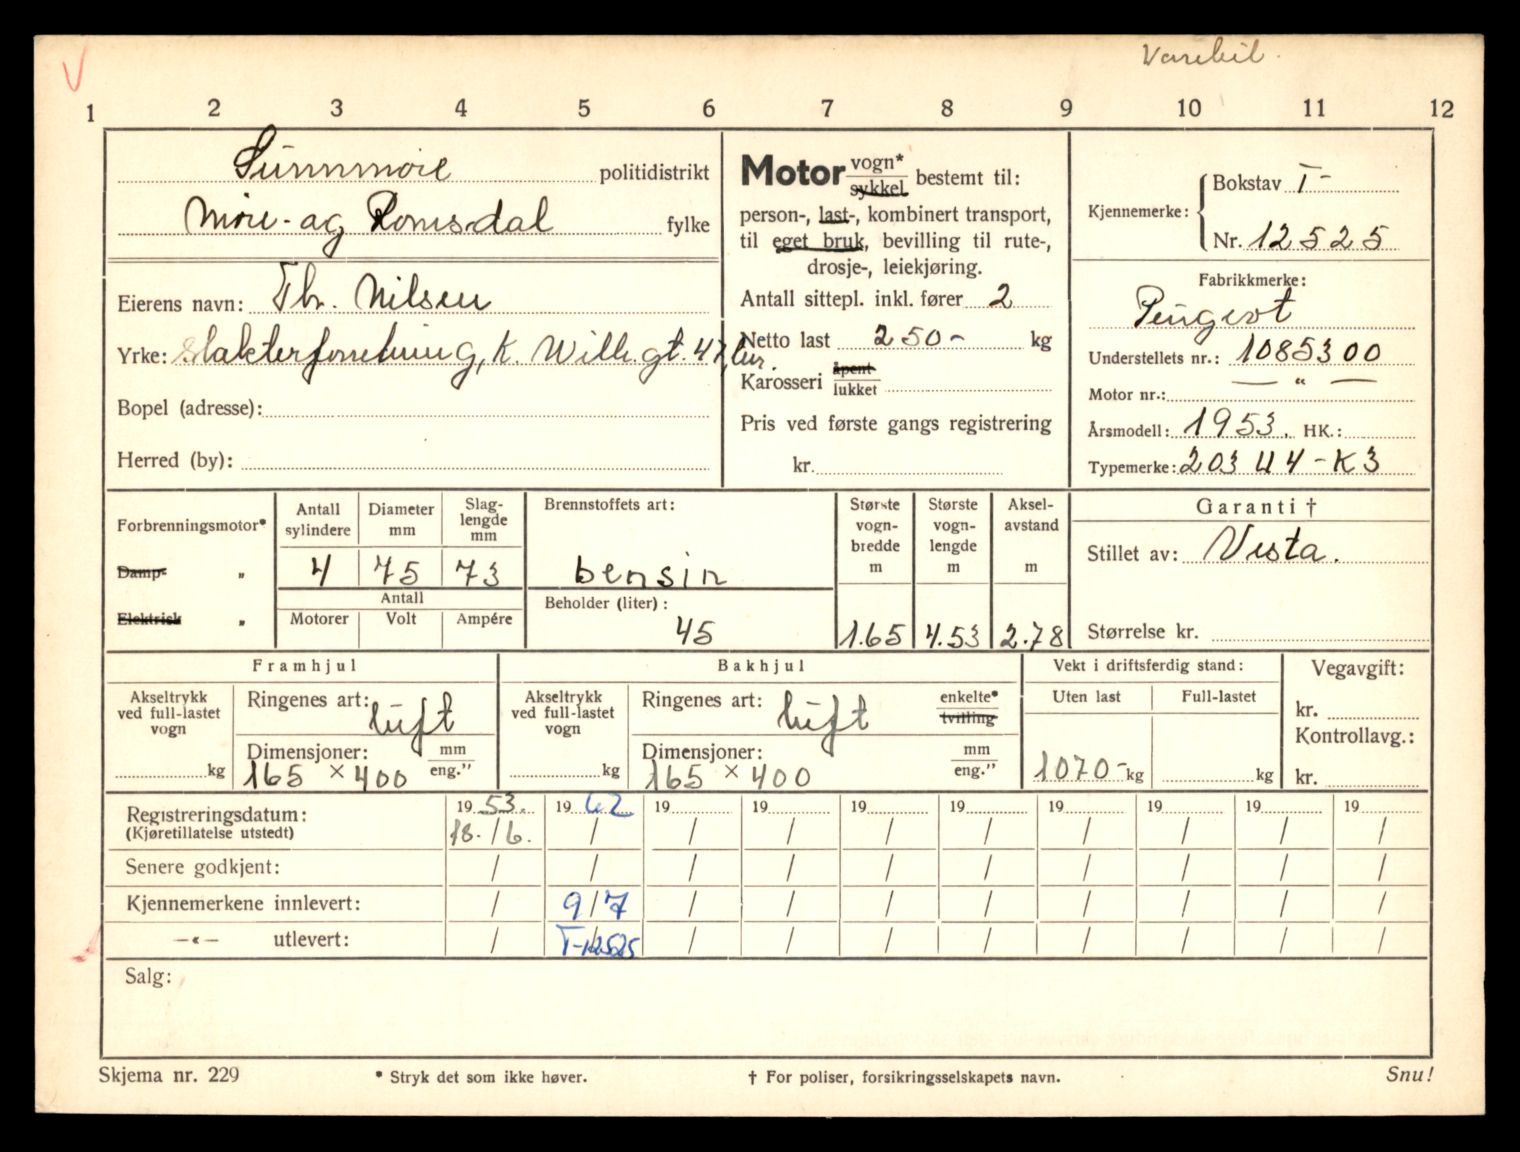 V
Varebil.
1 2 3 4 5 6 7 8 9 10 11 12
Sunnmøre politidistrikt
Møre- og Romsdal fylke
Eierens navn: Thr. Nilsen
Yrke: Slakterforretning, K. Wilh. gt. 47,
Bopel (adresse):
Herred (by):
Motor vogn* sykkel bestemt til:
person-, last-, kombinert transport,
til eget bruk, bevilling til rute-,
drosje-, leiekjøring.
Antall sittepl. inkl. fører 2
Netto last 250- kg
Karosseri åpent lukket
Pris ved første gangs registrering
kr.
Kjennemerke: Bokstav T-
Nr. 12525
Fabrikkmerke:
Peugeot
Understellets nr.: 1085300
Motor nr.: — " —
Årsmodell: 1953. HK.:
Typemerke: 203 U4-K3
Forbrenningsmotor*
Damp- "
Elektrisk "
Antall sylindere 4
Diameter mm 75
Slag-lengde mm 73
Antall
Motorer Volt Ampére
Brennstoffets art:
bensin
Beholder (liter):
45
Største vogn-bredde m 1.65
Største vogn-lengde m 4.53
Aksel-avstand m 2.78
Garanti †
Stillet av: Vesta.
Størrelse kr.
Framhjul
Akseltrykk ved full-lastet vogn kg
Ringenes art: luft
Dimensjoner: mm eng."
165 × 400
Bakhjul
Akseltrykk ved full-lastet vogn kg
Ringenes art: luft enkelte* tvilling
Dimensjoner: mm eng."
165 × 400
Vekt i driftsferdig stand:
Uten last Full-lastet
1070- kg kg
Vegavgift:
kr.
Kontrollavg.:
kr.
Registreringsdatum: 1953. 1962 19 19 19 19 19 19 19 19
(Kjøretillatelse utstedt) 18. / 6. / / / / / / / / /
Senere godkjent: / / / / / / / / / /
Kjennemerkene innlevert: / 9/7 / / / / / / / /
—«— utlevert: / T-12525 / / / / / / / /
Salg:
Skjema nr. 229
* Stryk det som ikke høver.
† For poliser, forsikringsselskapets navn.
Snu!